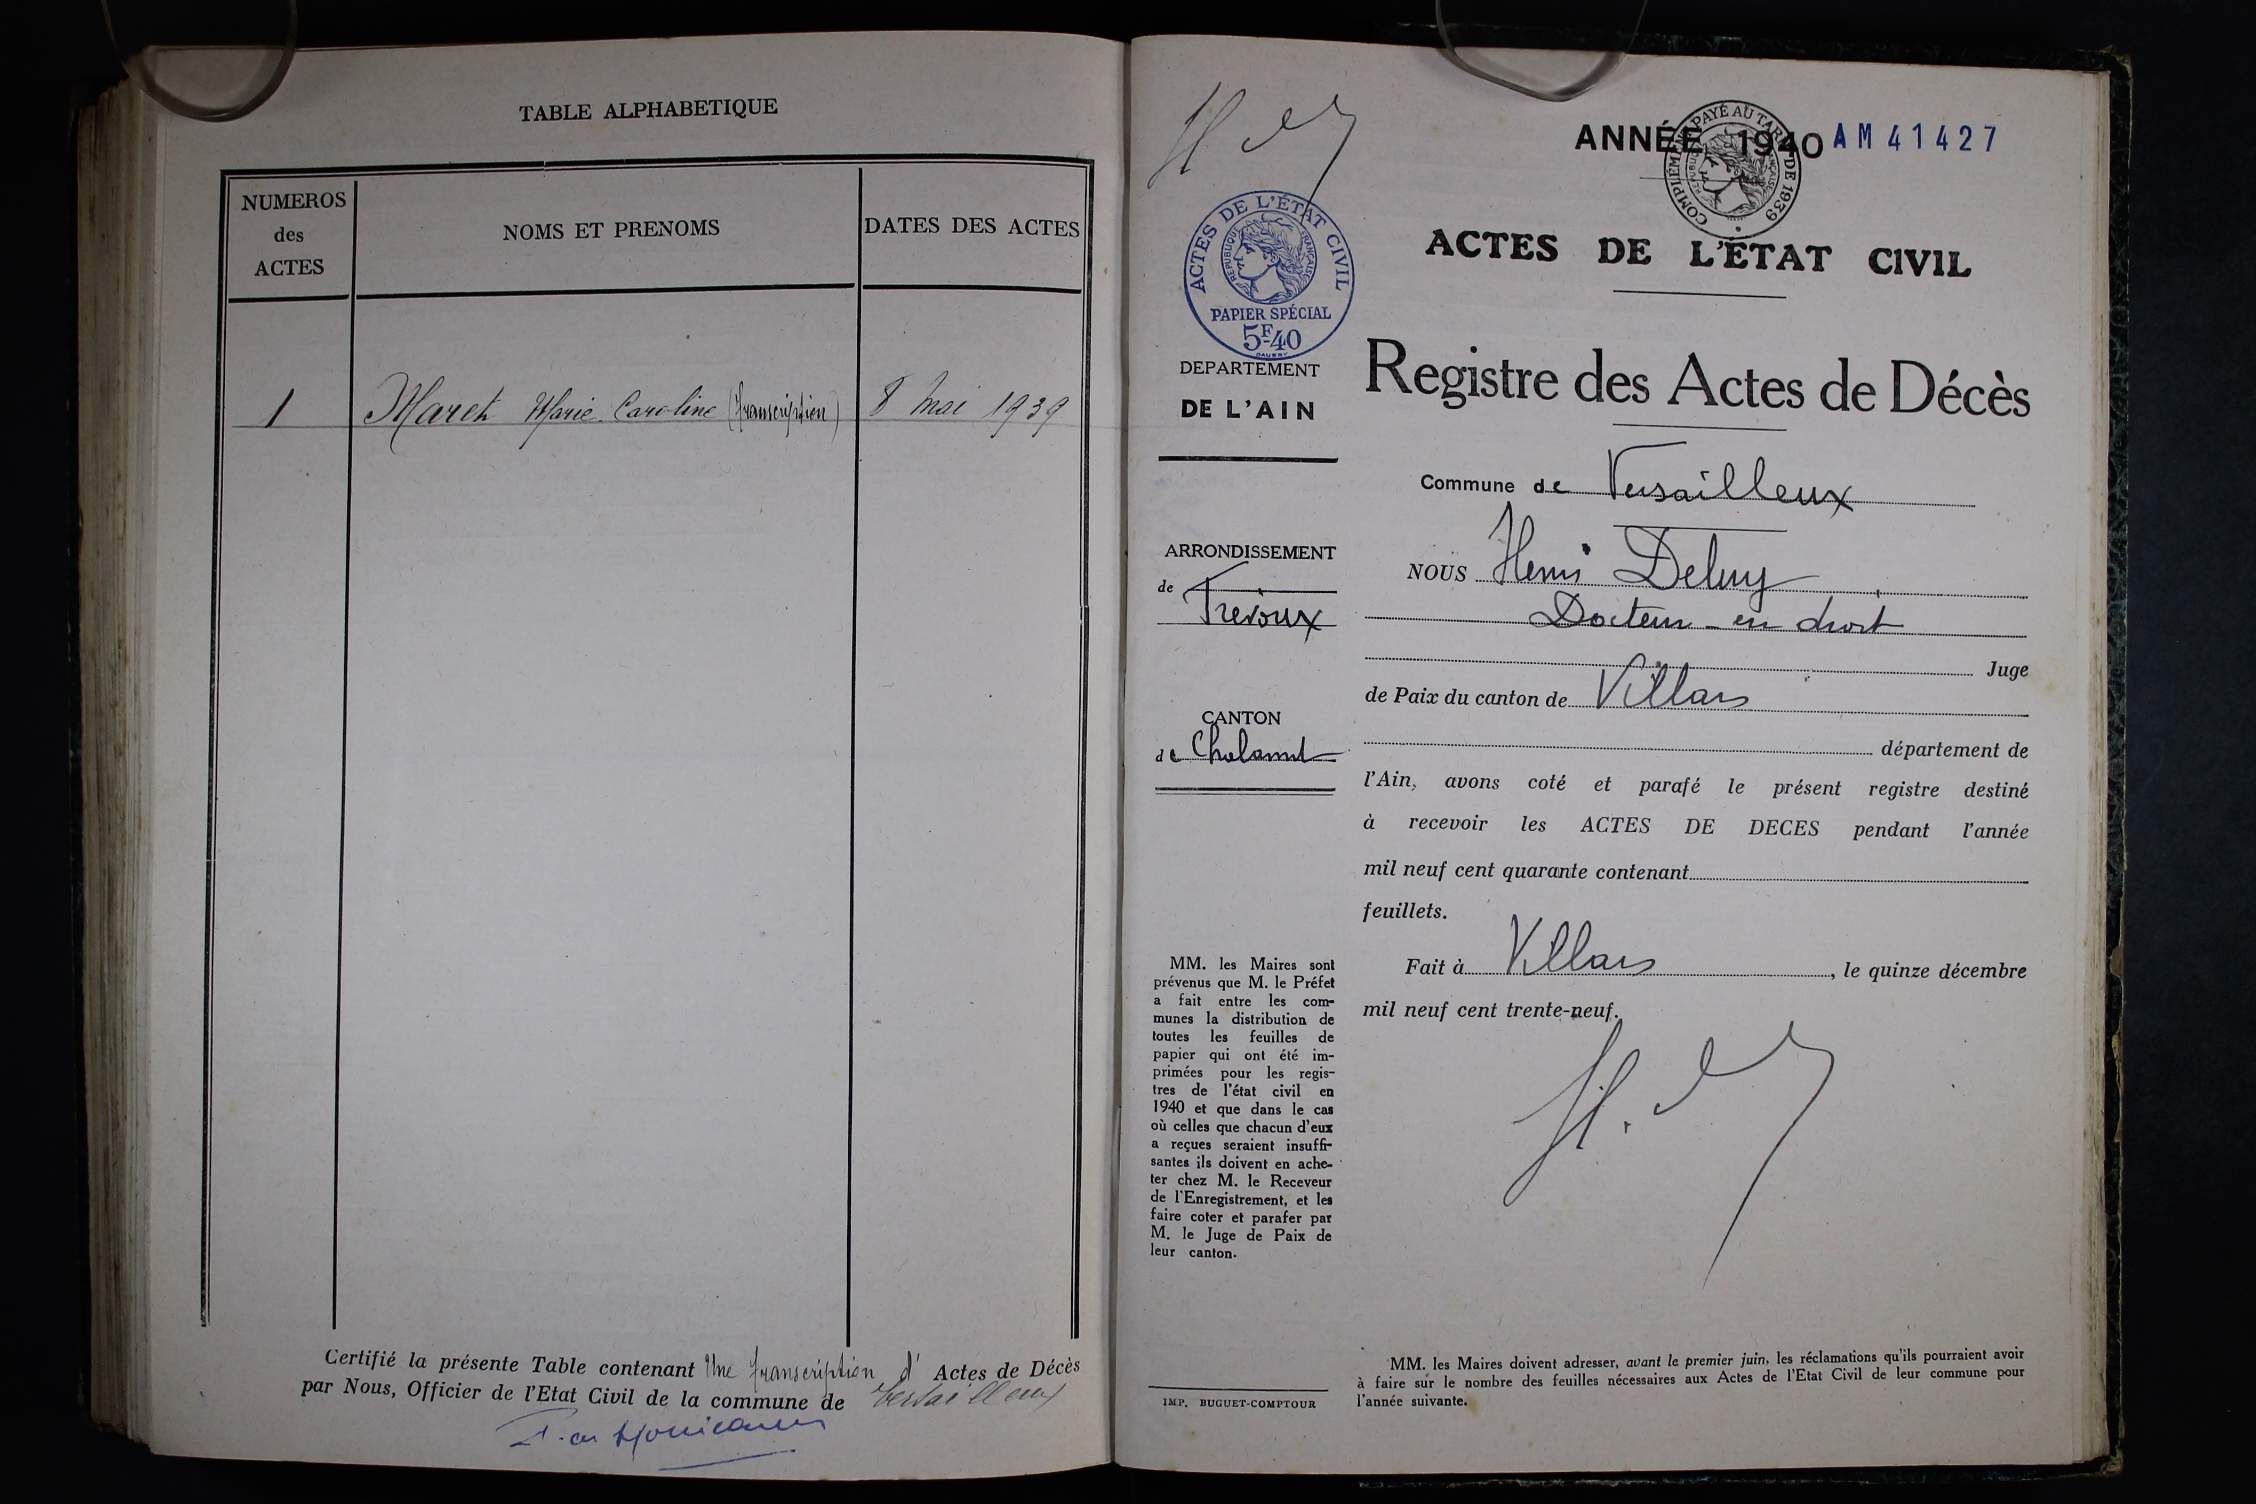 TABLE ALPHABETIQUE
NUMEROS
des
ACTES
NOMS ET PRENOMS
DATES DES ACTES
1
Maret Marie Caroline (transcription)
8 Mai 1939
Certifié la présente Table contenant Une transcription d' Actes de Décès
par Nous, Officier de l'Etat Civil de la commune de Versailleux
ANNÉE 1940
AM41427
COMPLÉMENT PAYÉ AU TARIF DE 1939
RÉPUBLIQUE FRANÇAISE
ACTES DE L'ÉTAT CIVIL
RÉPUBLIQUE FRANÇAISE
PAPIER SPÉCIAL
5F.40
DEPARTEMENT
DE L'AIN
ARRONDISSEMENT
de
Trévoux
CANTON
de Chalamont
MM. les Maires sont
prévenus que M. le Préfet
a fait entre les com-
munes la distribution de
toutes les feuilles de
papier qui ont été im-
primées pour les regis-
tres de l'état civil en
1940 et que dans le cas
où celles que chacun d'eux
a reçues seraient insuffi-
santes ils doivent en ache-
ter chez M. le Receveur
de l'Enregistrement, et les
faire coter et parafer par
M. le Juge de Paix de
leur canton.
IMP. BUGUET-COMPTOUR
ACTES DE L'ÉTAT CIVIL
Registre des Actes de Décès
Commune de Versailleux
NOUS Henri
Docteur en droit
Juge
de Paix du canton de Villars
département de
l'Ain, avons coté et parafé le présent registre destiné
à recevoir les ACTES DE DECES pendant l'année
mil neuf cent quarante contenant
feuillets.
Fait à Villars, le quinze décembre
mil neuf cent trente-neuf.
MM. les Maires doivent adresser, avant le premier juin, les réclamations qu'ils pourraient avoir
à faire sur le nombre des feuilles nécessaires aux Actes de l'Etat Civil de leur commune pour
l'année suivante.